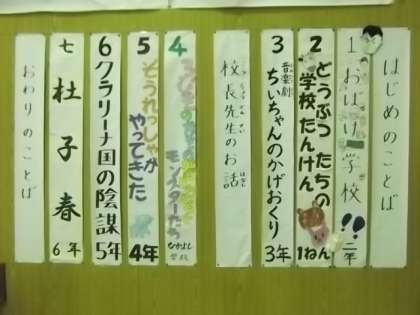 はじめのことば
1 おばけ学校!! 二年
2 どうぶつたちの
学校たんけん 1ねん
3 音楽劇
ちいちゃんのかげおくり 3年
校長先生のお話
4
モンスターたち
なかよし
学級
5 そうれっしゃが
やってきた 4年
6 クラリーナ国の陰謀 5年
七 杜子春 6年
おわりのことば